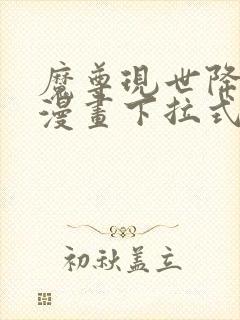 魔尊現世降
漫畫下拉式
初秋蓋立